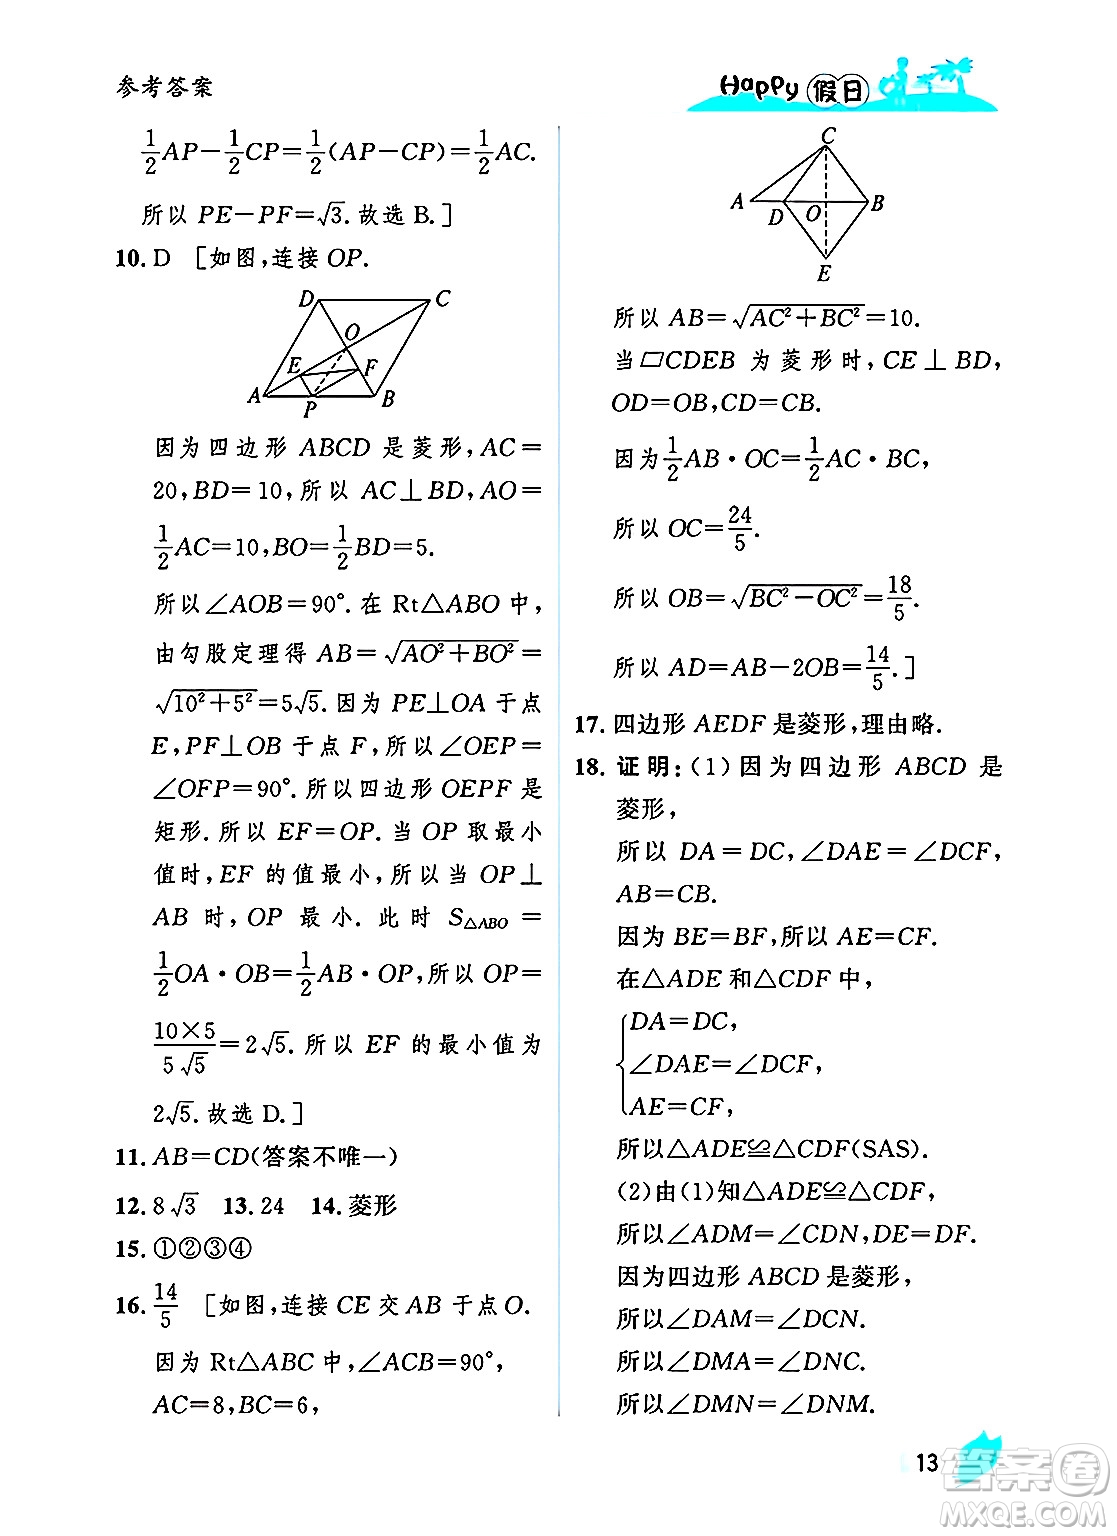 参考答案
Happy 假日
1/2AP-1/2CP=1/2(AP-CP)=1/2AC.
所以 PE-PF=√3.故选 B.]
10. D [如图,连接OP.
D C
O
E F
A P B
因为四边形 ABCD 是菱形,AC=
20,BD=10,所以 AC⊥BD,AO=
1/2AC=10,BO=1/2BD=5.
所以∠AOB=90°.在 Rt△ABO 中,
由勾股定理得 AB=√(AO²+BO²)=
√(10²+5²)=5√5.因为 PE⊥OA 于点
E,PF⊥OB 于点 F,所以∠OEP=
∠OFP=90°.所以四边形 OEPF 是
矩形.所以 EF=OP.当 OP 取最小
值时,EF 的值最小,所以当 OP⊥
AB 时,OP 最小.此时 S△ABO=
1/2OA·OB=1/2AB·OP,所以 OP=
(10×5)/(5√5)=2√5.所以 EF 的最小值为
2√5.故选 D.]
11. AB=CD(答案不唯一)
12. 8√3 13. 24 14. 菱形
15. ①②③④
16. 14/5 [如图,连接 CE 交 AB 于点O.
因为 Rt△ABC 中,∠ACB=90°,
AC=8,BC=6,
C
A D O B
E
所以 AB=√(AC²+BC²)=10.
当▱CDEB 为菱形时,CE⊥BD,
OD=OB,CD=CB.
因为1/2AB·OC=1/2AC·BC,
所以 OC=24/5.
所以 OB=√(BC²-OC²)=18/5.
所以 AD=AB-2OB=14/5.]
17. 四边形 AEDF 是菱形,理由略.
18. 证明:(1)因为四边形 ABCD 是
菱形,
所以 DA=DC,∠DAE=∠DCF,
AB=CB.
因为 BE=BF,所以 AE=CF.
在△ADE 和△CDF 中,
DA=DC,
∠DAE=∠DCF,
AE=CF,
所以△ADE≌△CDF(SAS).
(2)由(1)知△ADE≌△CDF,
所以∠ADM=∠CDN,DE=DF.
因为四边形 ABCD 是菱形,
所以∠DAM=∠DCN.
所以∠DMA=∠DNC.
所以∠DMN=∠DNM.
13
答案圈
MXQE.COM